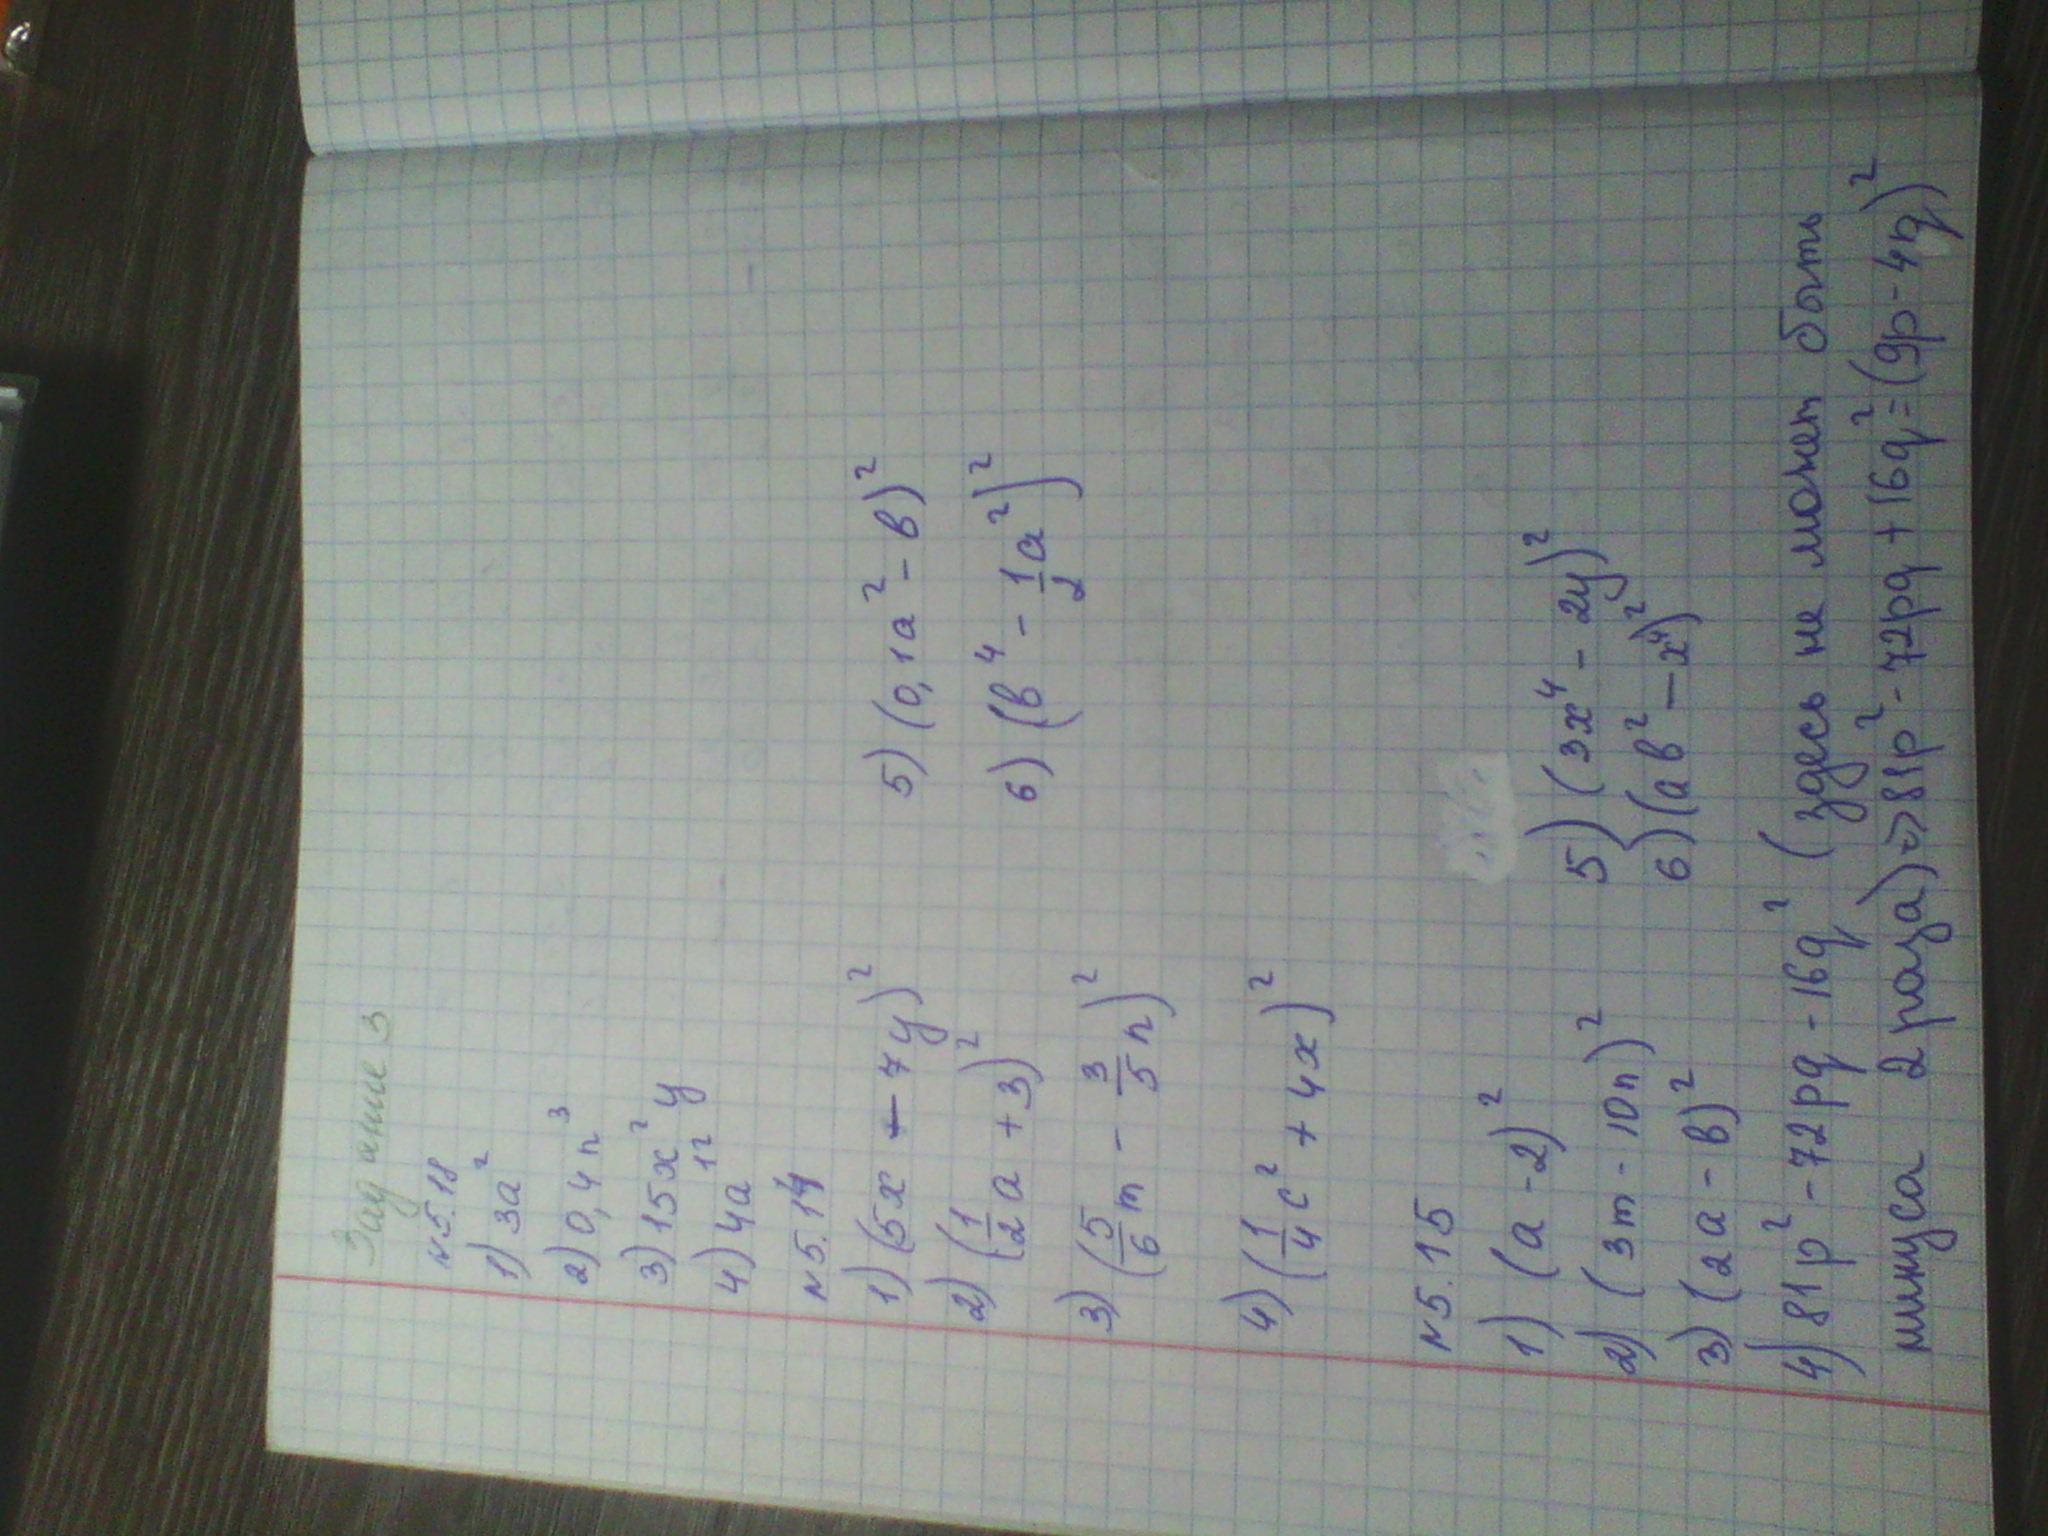 Задание 3
N 5.18
1) 3a²
2) 0,4n³
3) 15x²y
4) 4a¹²
N 5.14
1) (5x - 7y)²
2) (½a + 3)²
3) (5/6m - 3/5n)²
4) (¼c² + 4x)²
5) (0,1a² - b)²
6) (b⁴ - ½a²)²
N 5.15
1) (a - 2)²
2) (3m - 10n)²
3) (2a - b)²
5) (3x⁴ - 2y)²
6) (ab² - x⁴)²
4) 81p² - 72pq - 16q² (здесь не может быть
минуса 2 раза) => 81p² - 72pq + 16q² = (9p - 4q)²